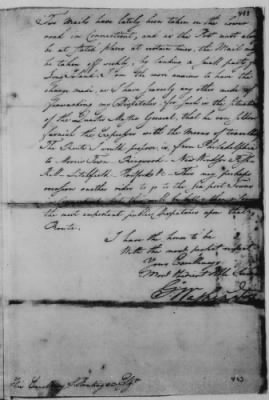 Two Mails have lately been taken on the lower
road in Connecticut, and as the Post must always
be at stated places at certain times, the Mail may
be taken off weekly, by landing a small party from
Long Island. I am the more anxious to have the
change made, as I have scarcely any other mode of
forwarding my Dispatches for such is the situation
of the Quarter Master General, that he very seldom
furnish the Expresses with the Means of travelling
The Route I would propose, is, from Philadelphia
to Morris Town Ringwood New Windsor Fishkill
Litchfield Hartford &c There may perhaps
another rider to go to the Sea port Towns
the most important public dispatches upon that
Route.
I have the honor to be
With the most perfect respect
Your Excellency's
Most Obedient Hble Servt
Go Washington
His Excellency S. Huntington Esqr